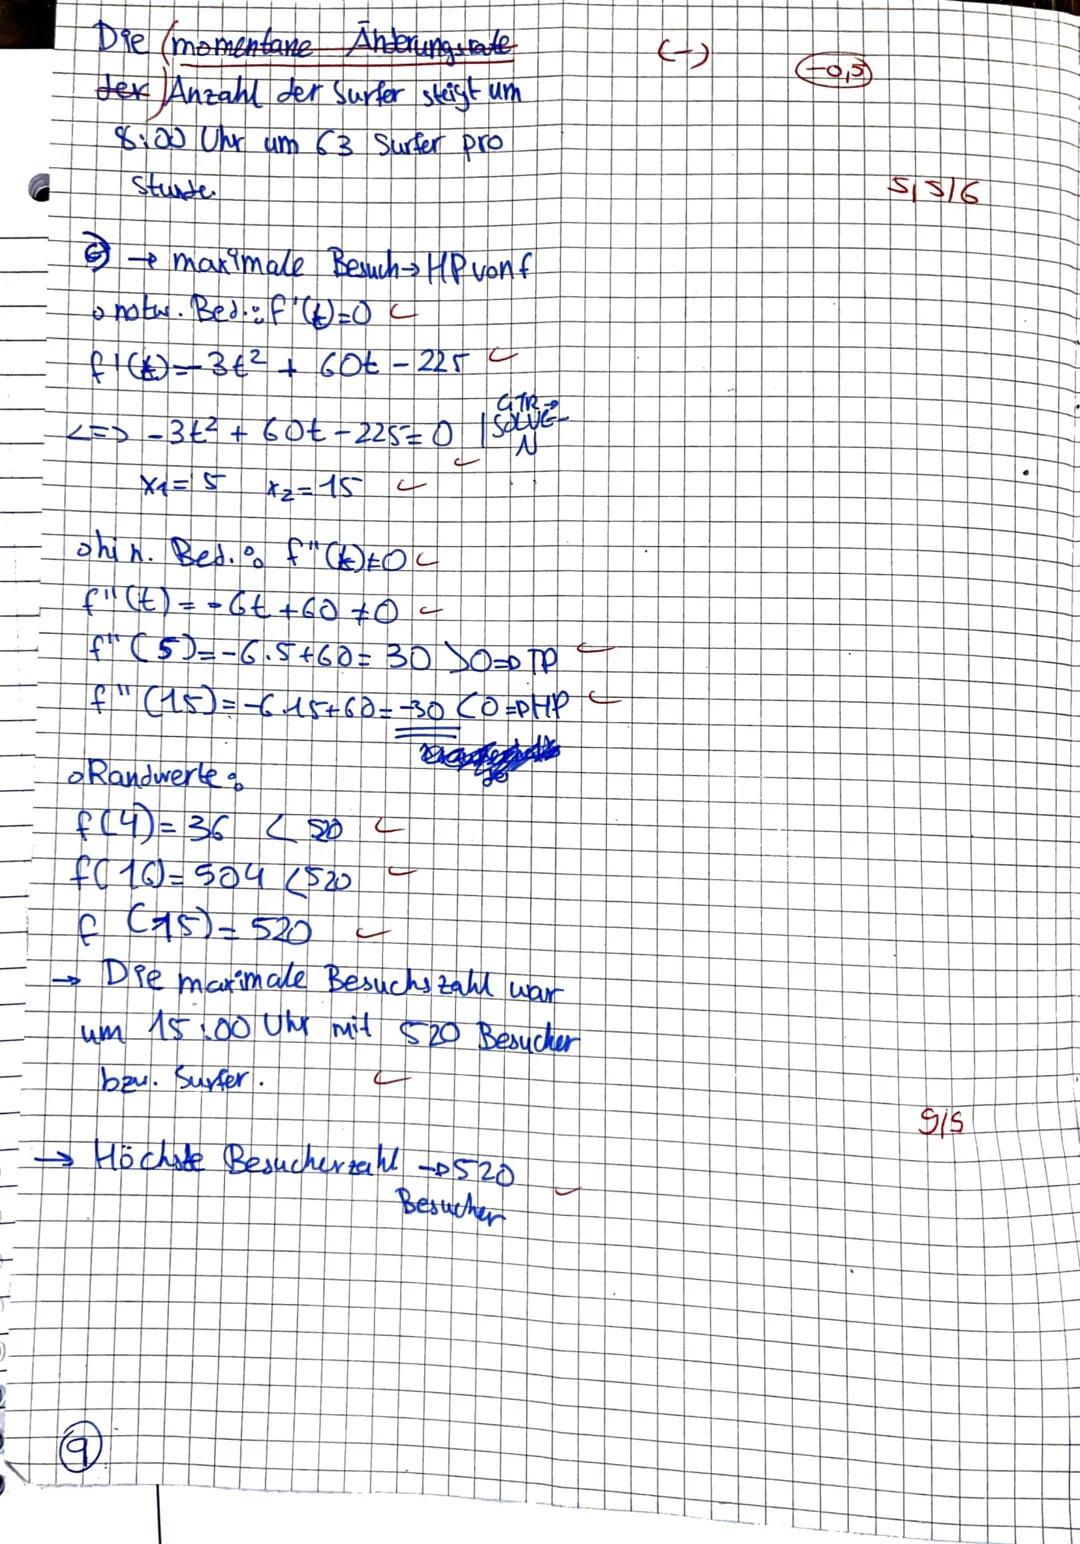 Die (momentane Änderungsrate (-) (-0,5)
der) Anzahl der Surfer steigt um
8:00 Uhr um 63 Surfer pro
Stunde. 5,5/6
c) → maximale Besuch → HP von f
o notw. Bed.: f'(t)=0
f'(t)=-3t² + 60t - 225
<=> -3t² + 60t - 225 = 0 | GTR→ SOLVE-N
x1 = 5 x2 = 15
o hin. Bed.: f"(t)≠0
f"(t) = -6t + 60 ≠ 0
f"(5)=-6·5+60= 30 >0=> TP
f"(15)=-6·15+60=-30 <0=> HP
o Randwerte:
f(4)= 36 < 520
f(16)= 504 < 520
f (15)= 520
→ Die maximale Besuchszahl war
um 15:00 Uhr mit 520 Besucher
bzw. Surfer.
9/9
→ Höchste Besucherzahl → 520
Besucher
9